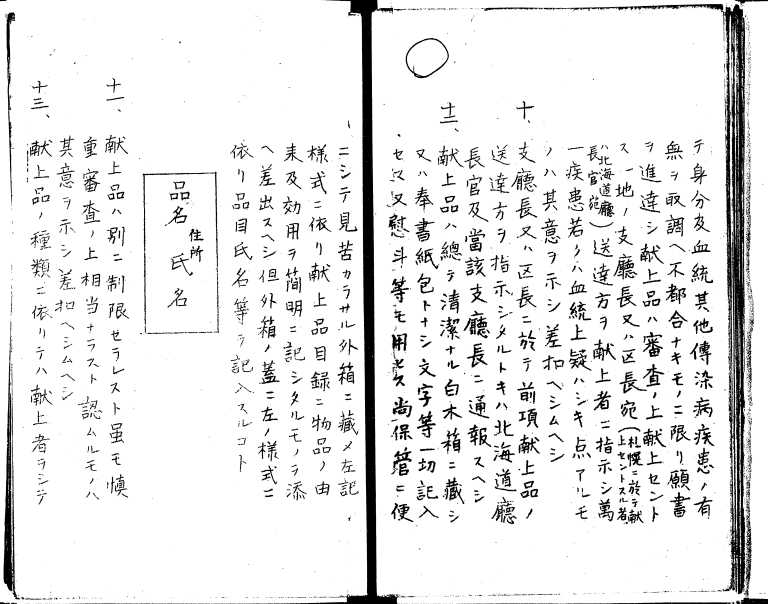 テ身分及血統其他傳染病疾患ノ有
無ヲ取調ヘ不都合ナキモノニ限リ願書
ヲ進達シ献上品ハ審査ノ上献上セント
ス一地ノ支廳長又ハ区長宛(札幌ニ於テ献
上セントスル者
ハ北海道廳
長官宛)送達方ヲ献上者ニ指示シ萬
一疾患若クハ血統上疑ハシキ点アルモ
ノハ其意ヲ示シ差扣ヘシムヘシ
十、支廳長又ハ区長ニ於テ前項献上品ノ
送達方ヲ指示シタルトキハ北海道廳
長官及當該支廳長ニ通報スヘシ
十二、献上品ハ總テ清潔ナル白木箱ニ藏シ
又ハ奉書紙包トナシ文字等一切記入
セス又慰斗等モ用ヒス尚保管ニ便
ニシテ見苦カラサル外箱ニ藏メ左記
様式ニ依リ献上品目録ニ物品ノ由
来及効用ヲ簡明ニ記シタルモノヲ添
ヘ差出スヘシ但外箱ノ蓋ニ左ノ様式ニ
依リ品目氏名等ヲ記入スルコト
品名
住所
氏名
十一、献上品ハ別ニ制限セラレスト虽モ慎
重審査ノ上相当ナラスト認ムルモノハ
其意ヲ示シ差扣ヘシムヘシ
十三、献上品ノ種類ニ依リテハ献上者ヲシテ